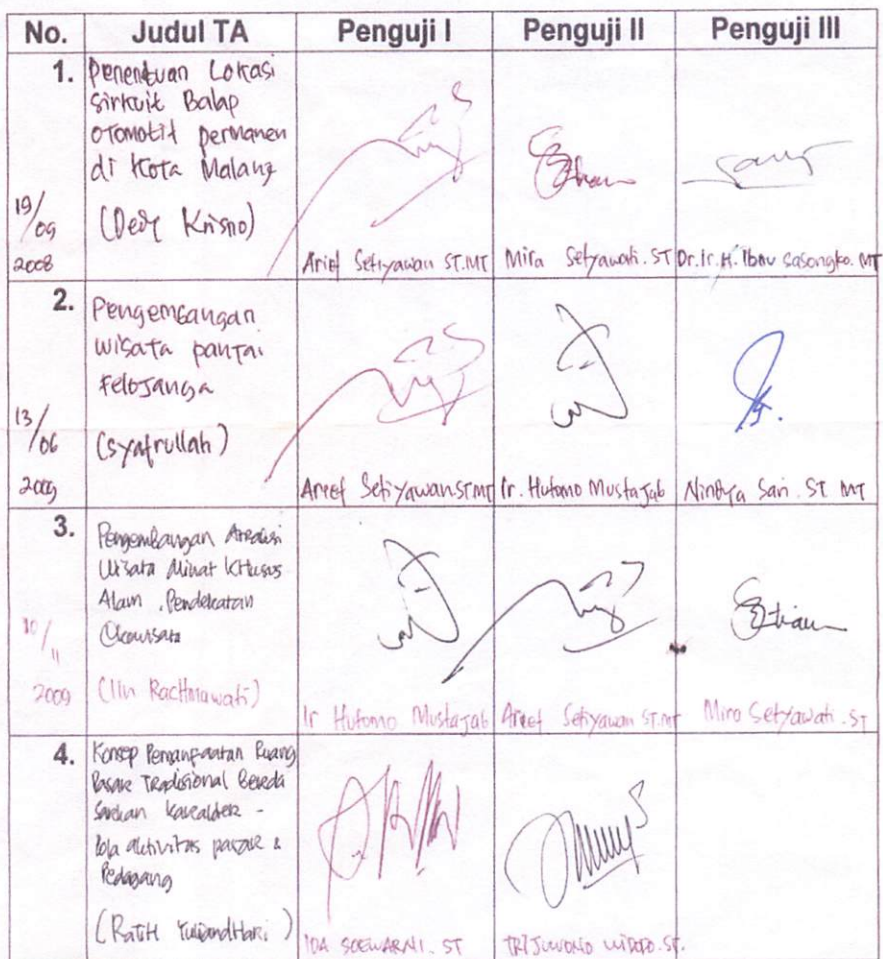 No. Judul TA Penguji I Penguji II Penguji III
1. Penentuan Lokasi
Sirkuit Balap
Otomotif permanen
di Kota Malang
19/09
2008
(Dedy Krisno)
Arief Setiyawan ST.MT
Mira Setyawati. ST
Dr.Ir.H. Ibnu Sasongko. MT
2. Pengembangan
wisata pantai
Felojanga
13/06
2009
(Syafrullah)
Areef Setiyawan ST MT
Ir. Hutomo Mustajab
Nindya Sari. ST MT
3. Pengembangan Atraksi
Wisata Minat Khusus
Alam, Pendekatan
Ekowisata
10/11
2009
(Iin Rachmawati)
Ir Hutomo Mustajab
Areef Setiyawan ST.MT
Mira Setyawati. ST
4. Konsep Pemanfaatan Ruang
Pasar Tradisional Berda
sarkan karakter -
Pola aktivitas pasar &
Pedagang
(Ratih Yuliandhari)
IDA SOEWARNI. ST
TRI JUWONO WIDODO.ST.